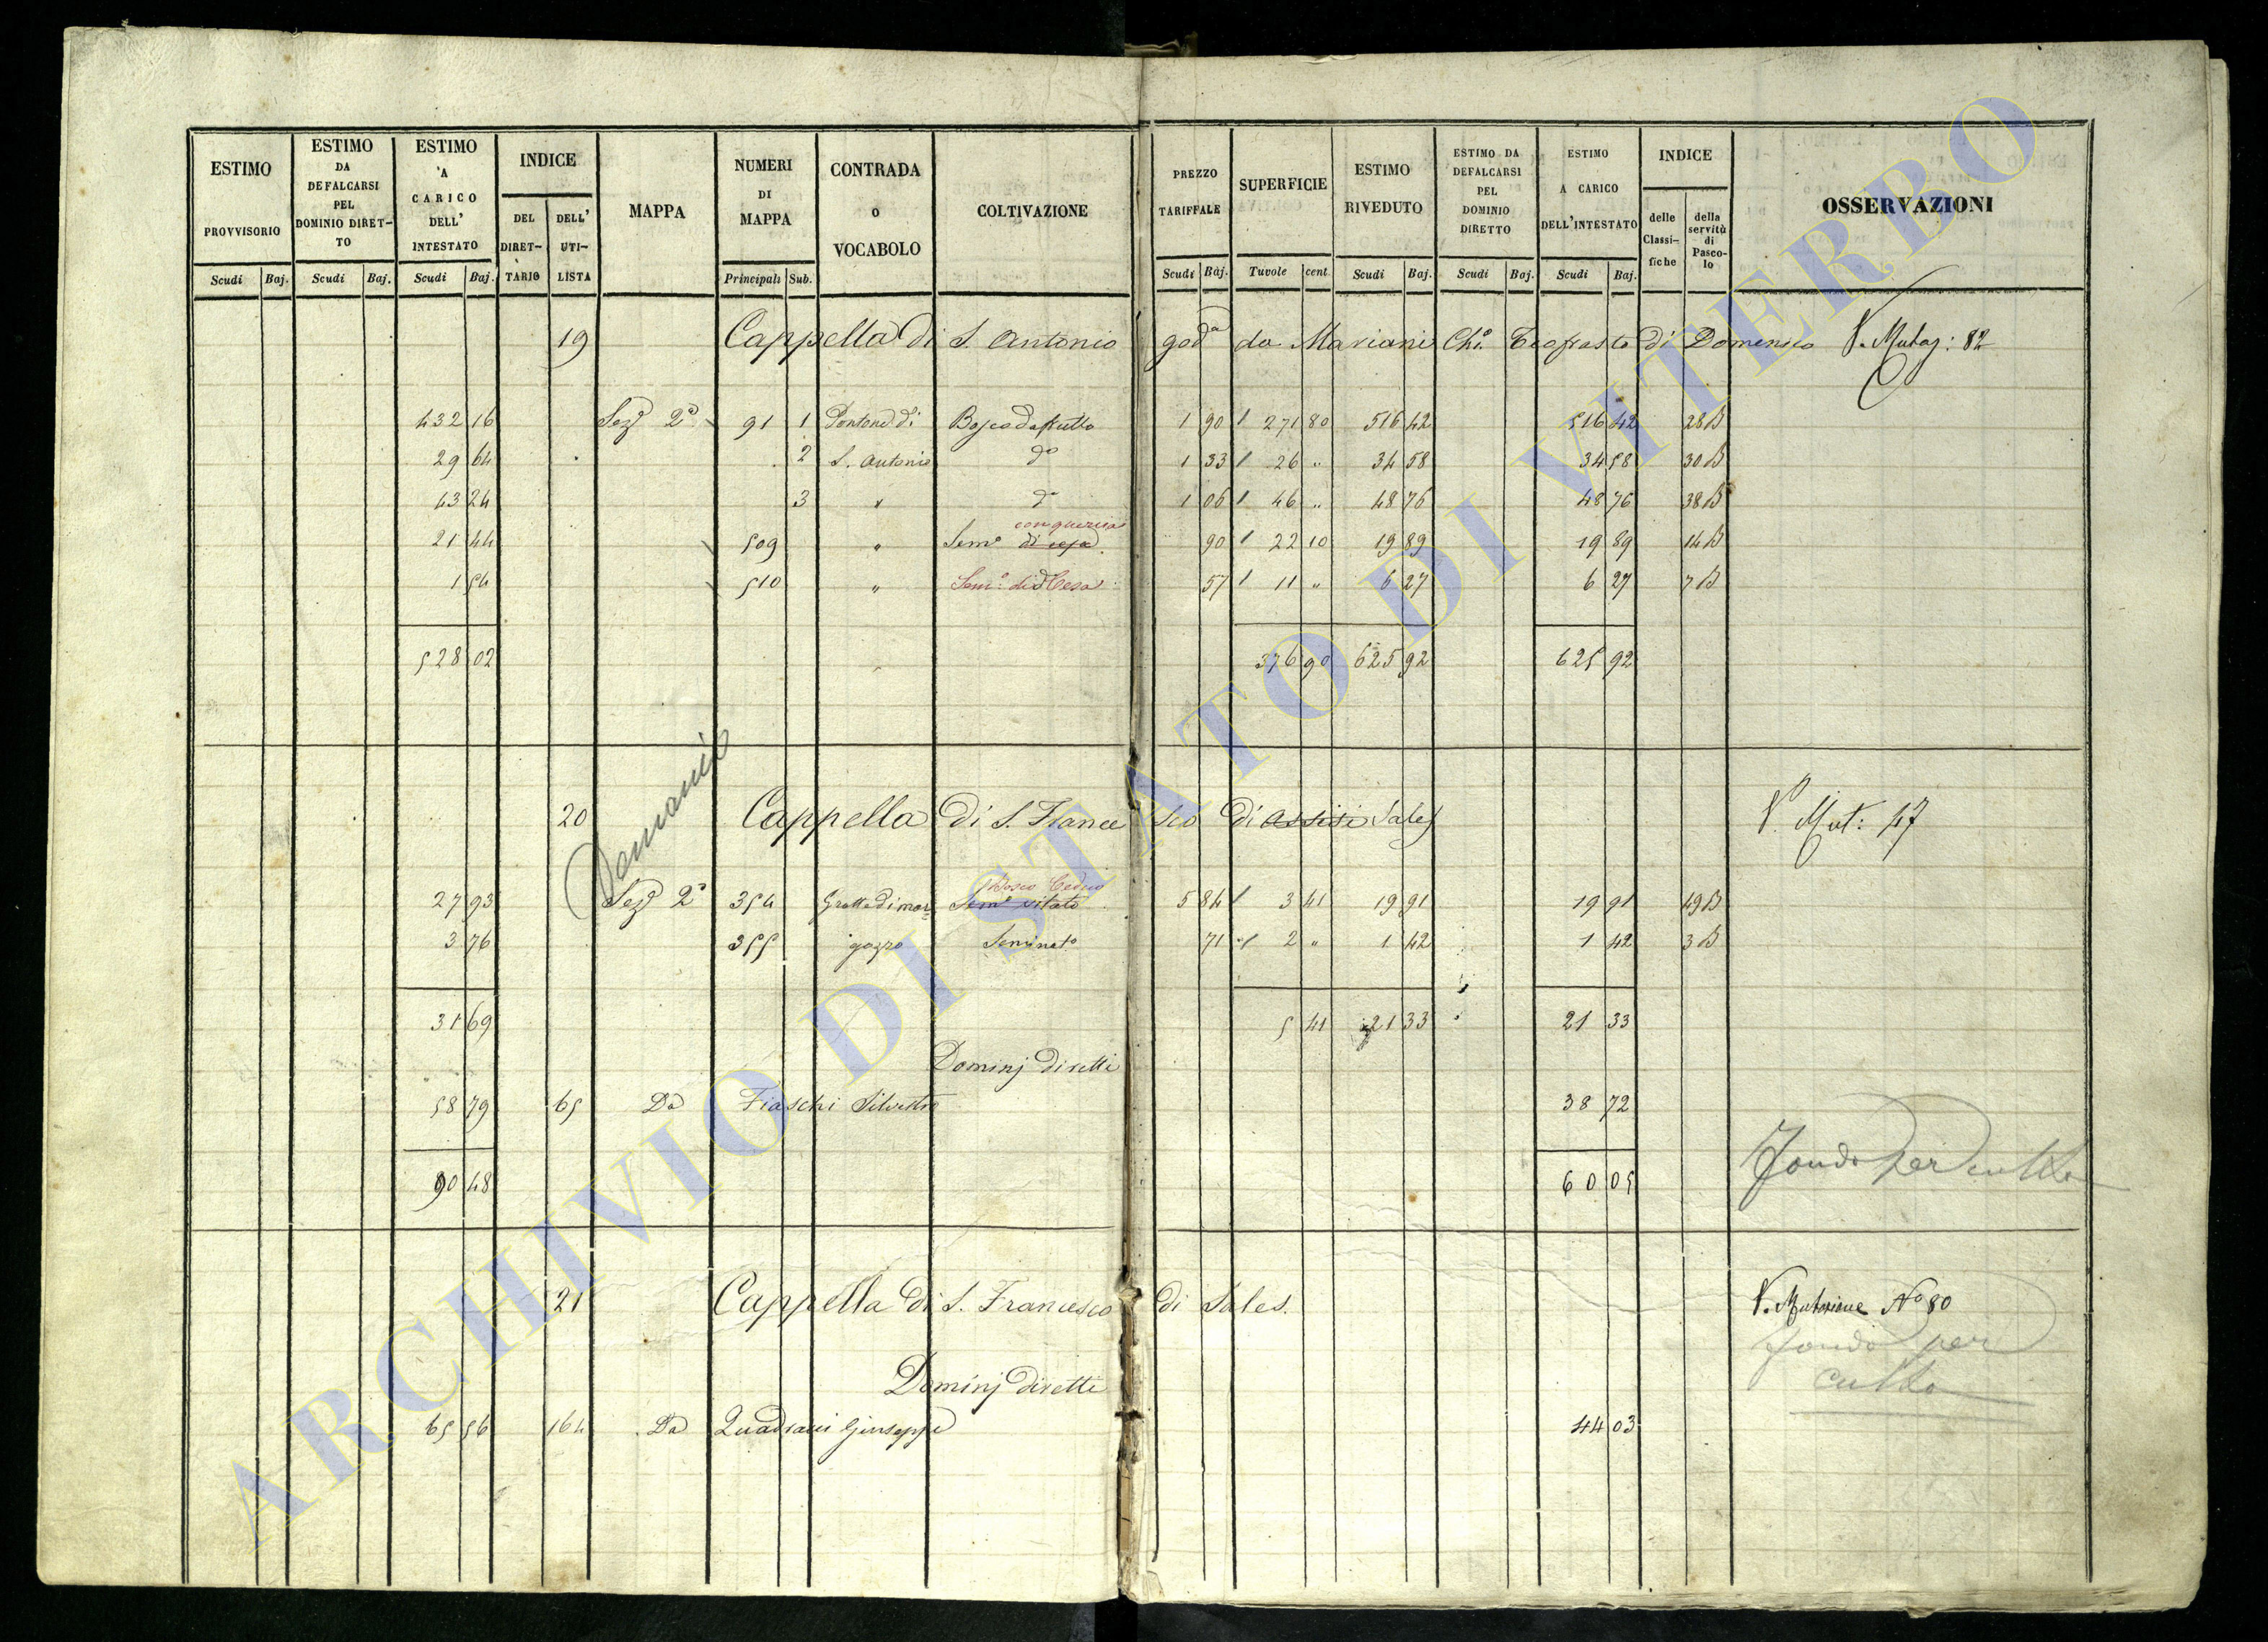 ESTIMO PROVVISORIO Scudi Baj.
ESTIMO DA DEFALCARSI PEL DOMINIO DIRET-TO Scudi Baj.
ESTIMO A CARICO DELL' INTESTATO Scudi Baj.
INDICE DEL DIRET-TARIO DELL' UTI-LISTA
MAPPA
NUMERI DI MAPPA Principali Sub.
CONTRADA O VOCABOLO
COLTIVAZIONE
PREZZO TARIFFALE Scudi Baj.
SUPERFICIE Tavole cent
ESTIMO RIVEDUTO Scudi Baj.
ESTIMO DA DEFALCARSI PEL DOMINIO DIRETTO Scudi Baj.
ESTIMO A CARICO DELL'INTESTATO Scudi Baj.
INDICE delle Classi-fiche della servitù di Pasco-lo
OSSERVAZIONI
19 Cappella di S. Antonio god.a da Mariani Ch.o Teofrasto di Domenico V. Mutaz: 82
432 16 Sez.e 2a 91 1 Pontone di Bosco da frutto 1 90 271 80 516 42 516 42 28 B
29 64 2 S. Antonio do 1 33 26 " 34 58 34 58 30 B
43 24 3 " do 1 06 46 " 48 76 48 76 38 B
con quercia
21 44 509 " Sem.o di cesa 90 22 10 19 89 19 89 14 B
1 54 510 " Sem.o di Cesa 57 11 " 6 27 6 27 7 B
528 02 376 90 625 92 625 92
Demanio
20 Cappella di S. France sco di Assisi Sales V. Mut: 47
Bosco Ceduo
27 93 Sez.e 2a 354 Grotte di mor= Sem.o vitato 5 84 3 41 19 91 19 91 19 B
3 76 355 gozzo Seminato 71 2 " 1 42 1 42 3 B
31 69 5 41 21 33 21 33
Dominj diretti
58 79 65 Da Fiaschi Silvestro 38 72
Fondo per culto
90 48 60 05
21 Cappella di S. Francesco di Sales. V. Mutazione No 80
fondo per
culto
Dominj diretti
65 56 164 Da Quadrani Giuseppe 44 03
ARCHIVIO DI STATO DI VITERBO